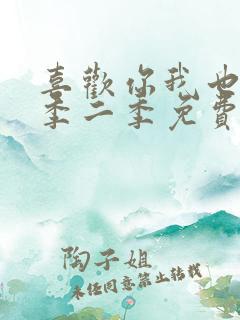 喜歡你我也
季二季免費
陶子姐
未经同意禁止转载